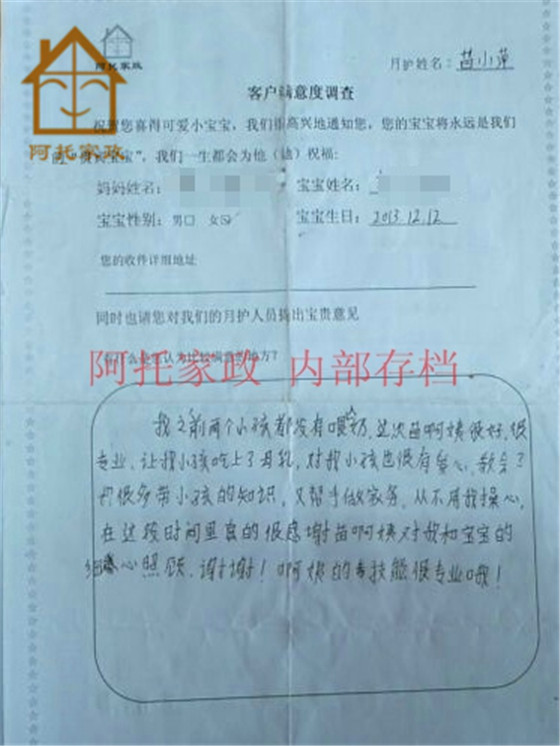 阿托家政
月护姓名：苗小萍
阿托家政
客户满意度调查
祝贺您喜得可爱小宝宝，我们很高兴地通知您，您的宝宝将永远是我们
宝宝”，我们一生都会为他（她）祝福：
妈妈姓名：
宝宝姓名：
宝宝性别：男□ 女
宝宝生日：2013.12.12
您的收件详细地址
同时也请您对我们的月护人员提出宝贵意见
认为比较满意的地方？
阿托家政 内部存档
我之前两个小孩都没有喂奶，这次苗啊姨很好，很
专业，让我小孩吃上了母乳，对我小孩也很有爱心，教会了
我很多带小孩的知识，又帮手做家务，从不用我操心，
在这段时间里真的很感谢苗啊姨对我和宝宝的
细心照顾，谢谢！啊姨的专技能很专业哦！